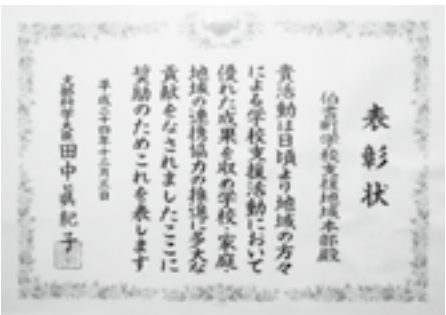 表彰状
伯耆町学校支援地域本部殿
貴活動は日頃より地域の方々
による学校支援活動において
優れた成果を収め学校・家庭・
地域の連携協力の推進に多大な
貢献をなされましたここに
奨励のためこれを表します
平成二十四年十二月三日
文部科学大臣 田中眞紀子